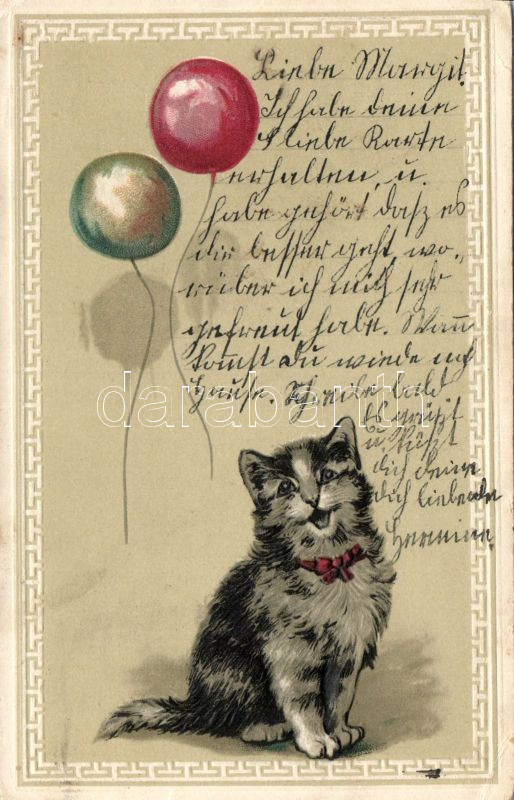 Liebe Margit.
Ich habe deine
liebe Karte
erhalten, u.
habe gehört dasz es
dir besser geht, wo-
rüber ich mich sehr
gefreut habe. Wann
kommst Du wiede nach
Hause. Schreibe bald
Es grüszt
u. küszt
dich deine
dich liebende
Hermine.
darabanth